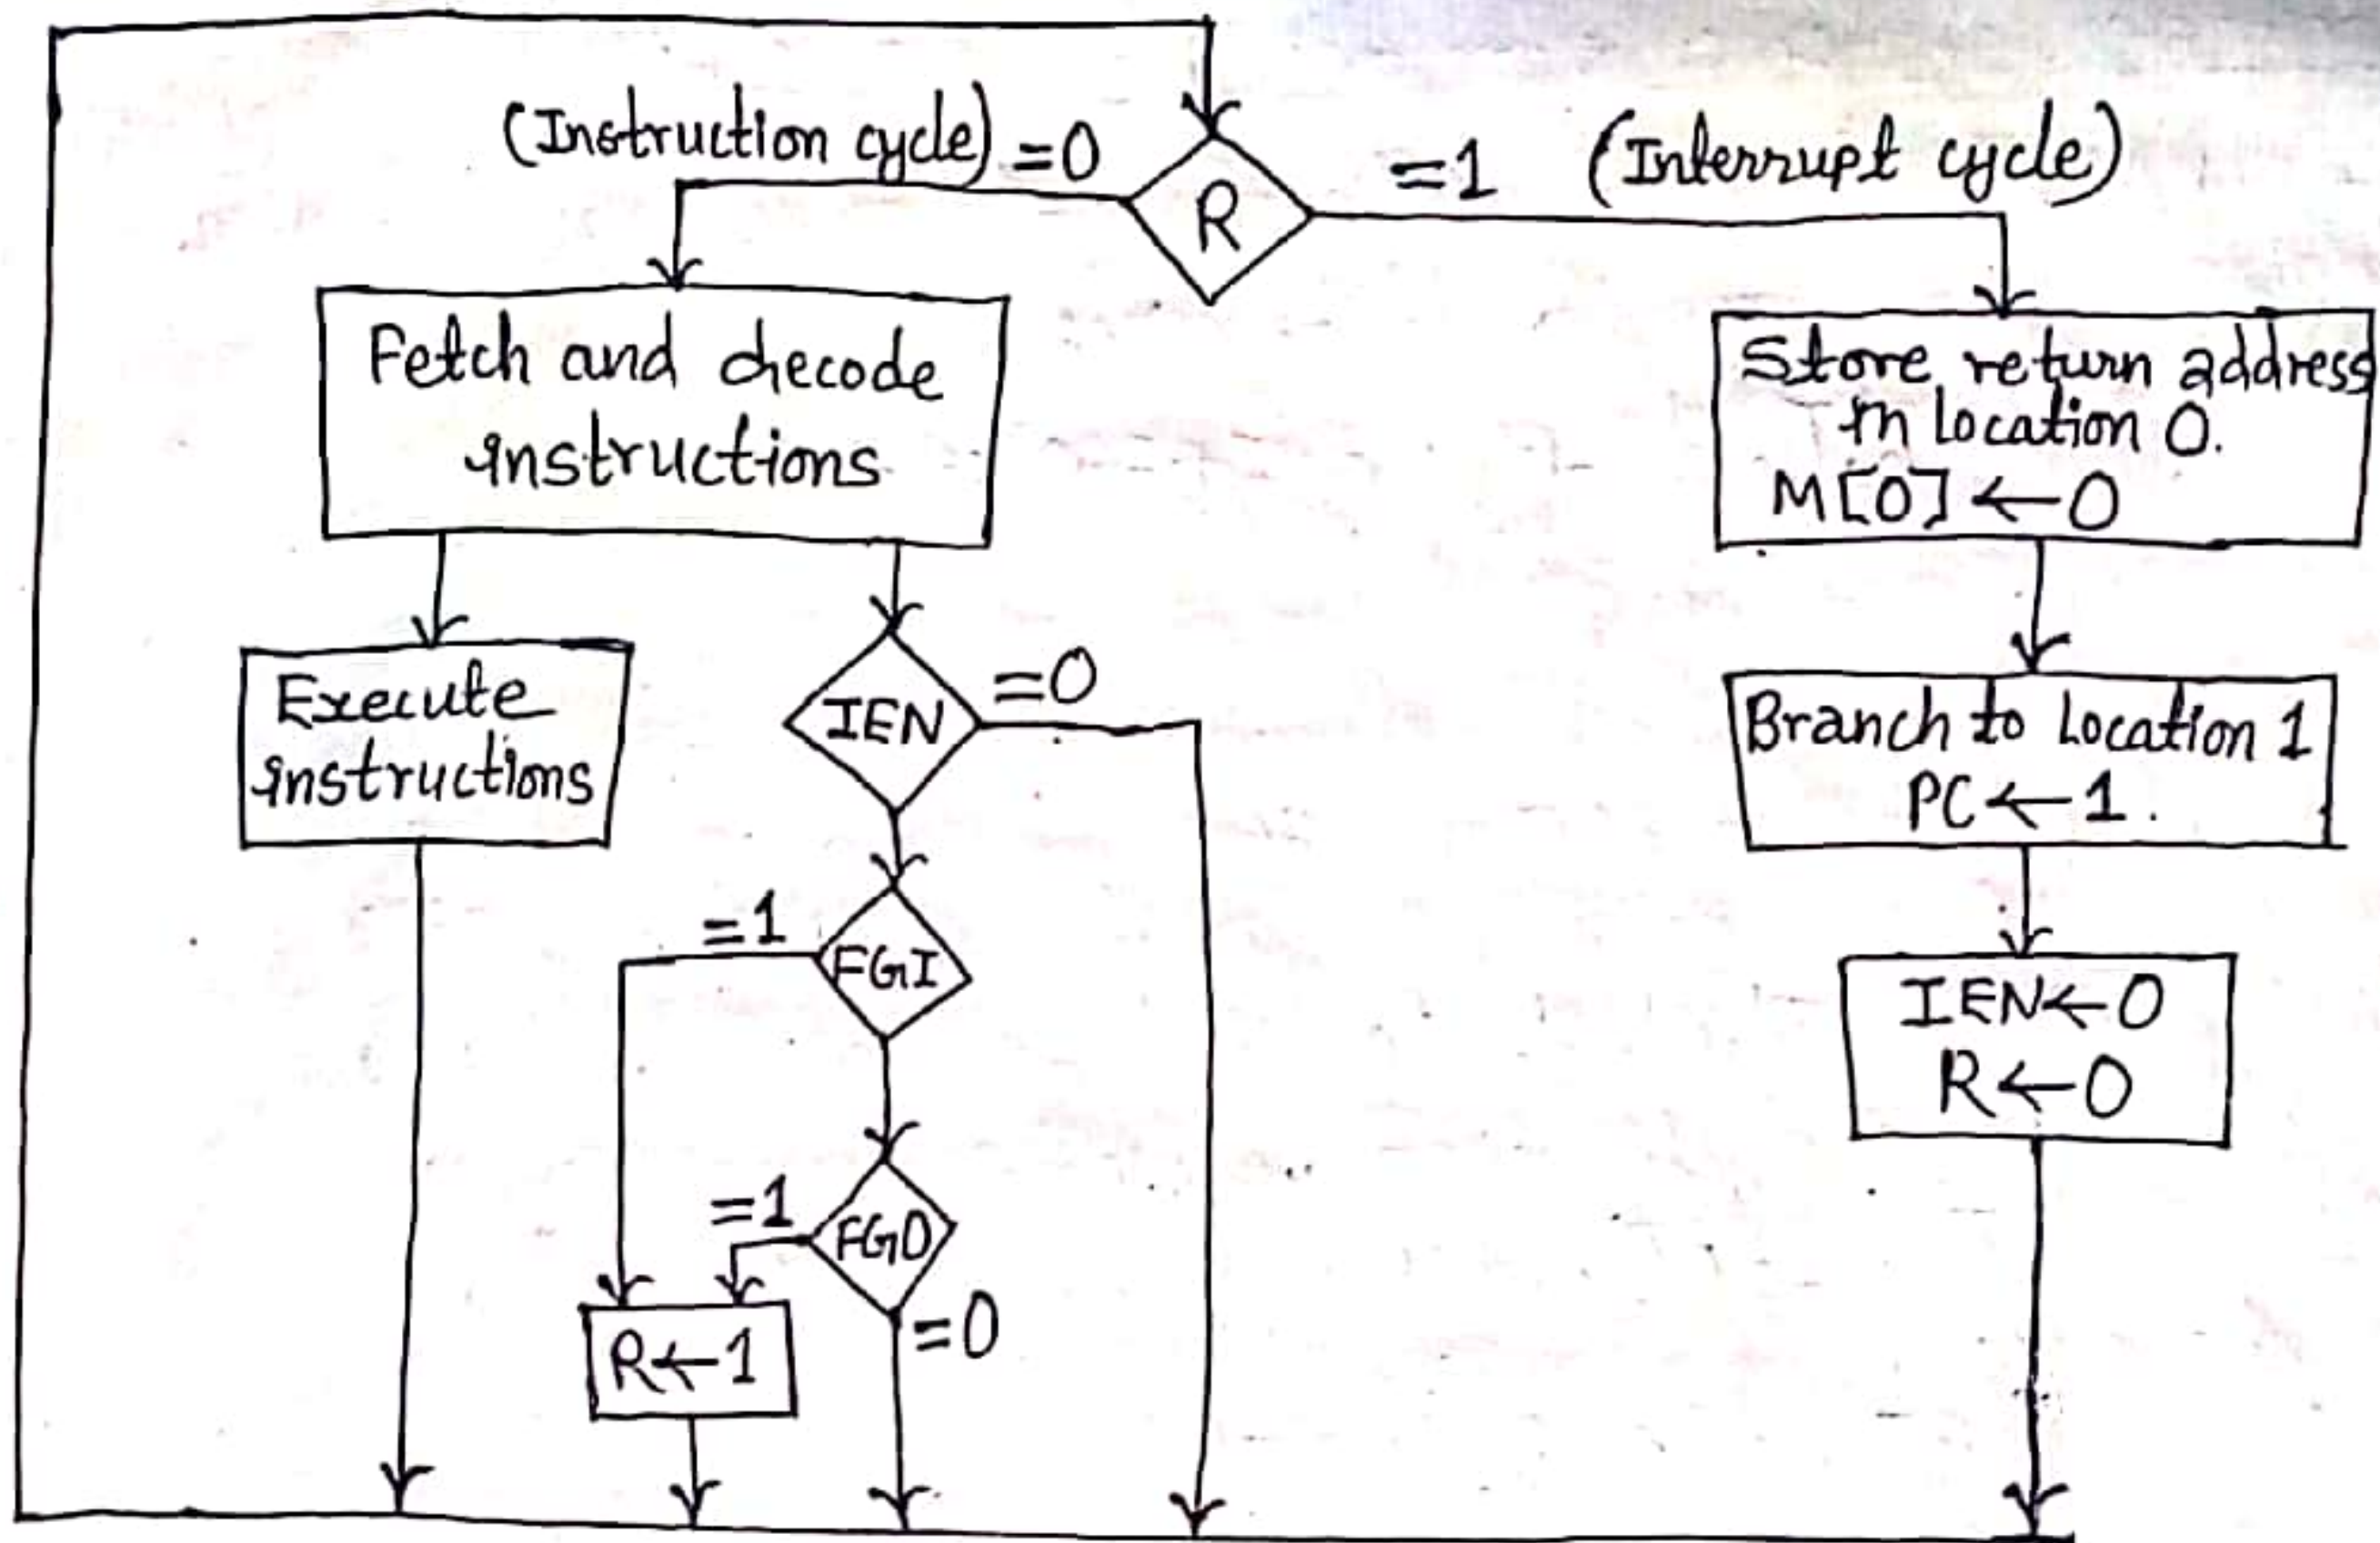 (Instruction cycle) =0
=1 (Interrupt cycle)
R
Fetch and decode
instructions
Store return address
in location 0.
M[0] ← 0
Execute
instructions
IEN
=0
Branch to Location 1
PC ← 1.
=1
FGI
IEN ← 0
R ← 0
=1
FGO
=0
R ← 1